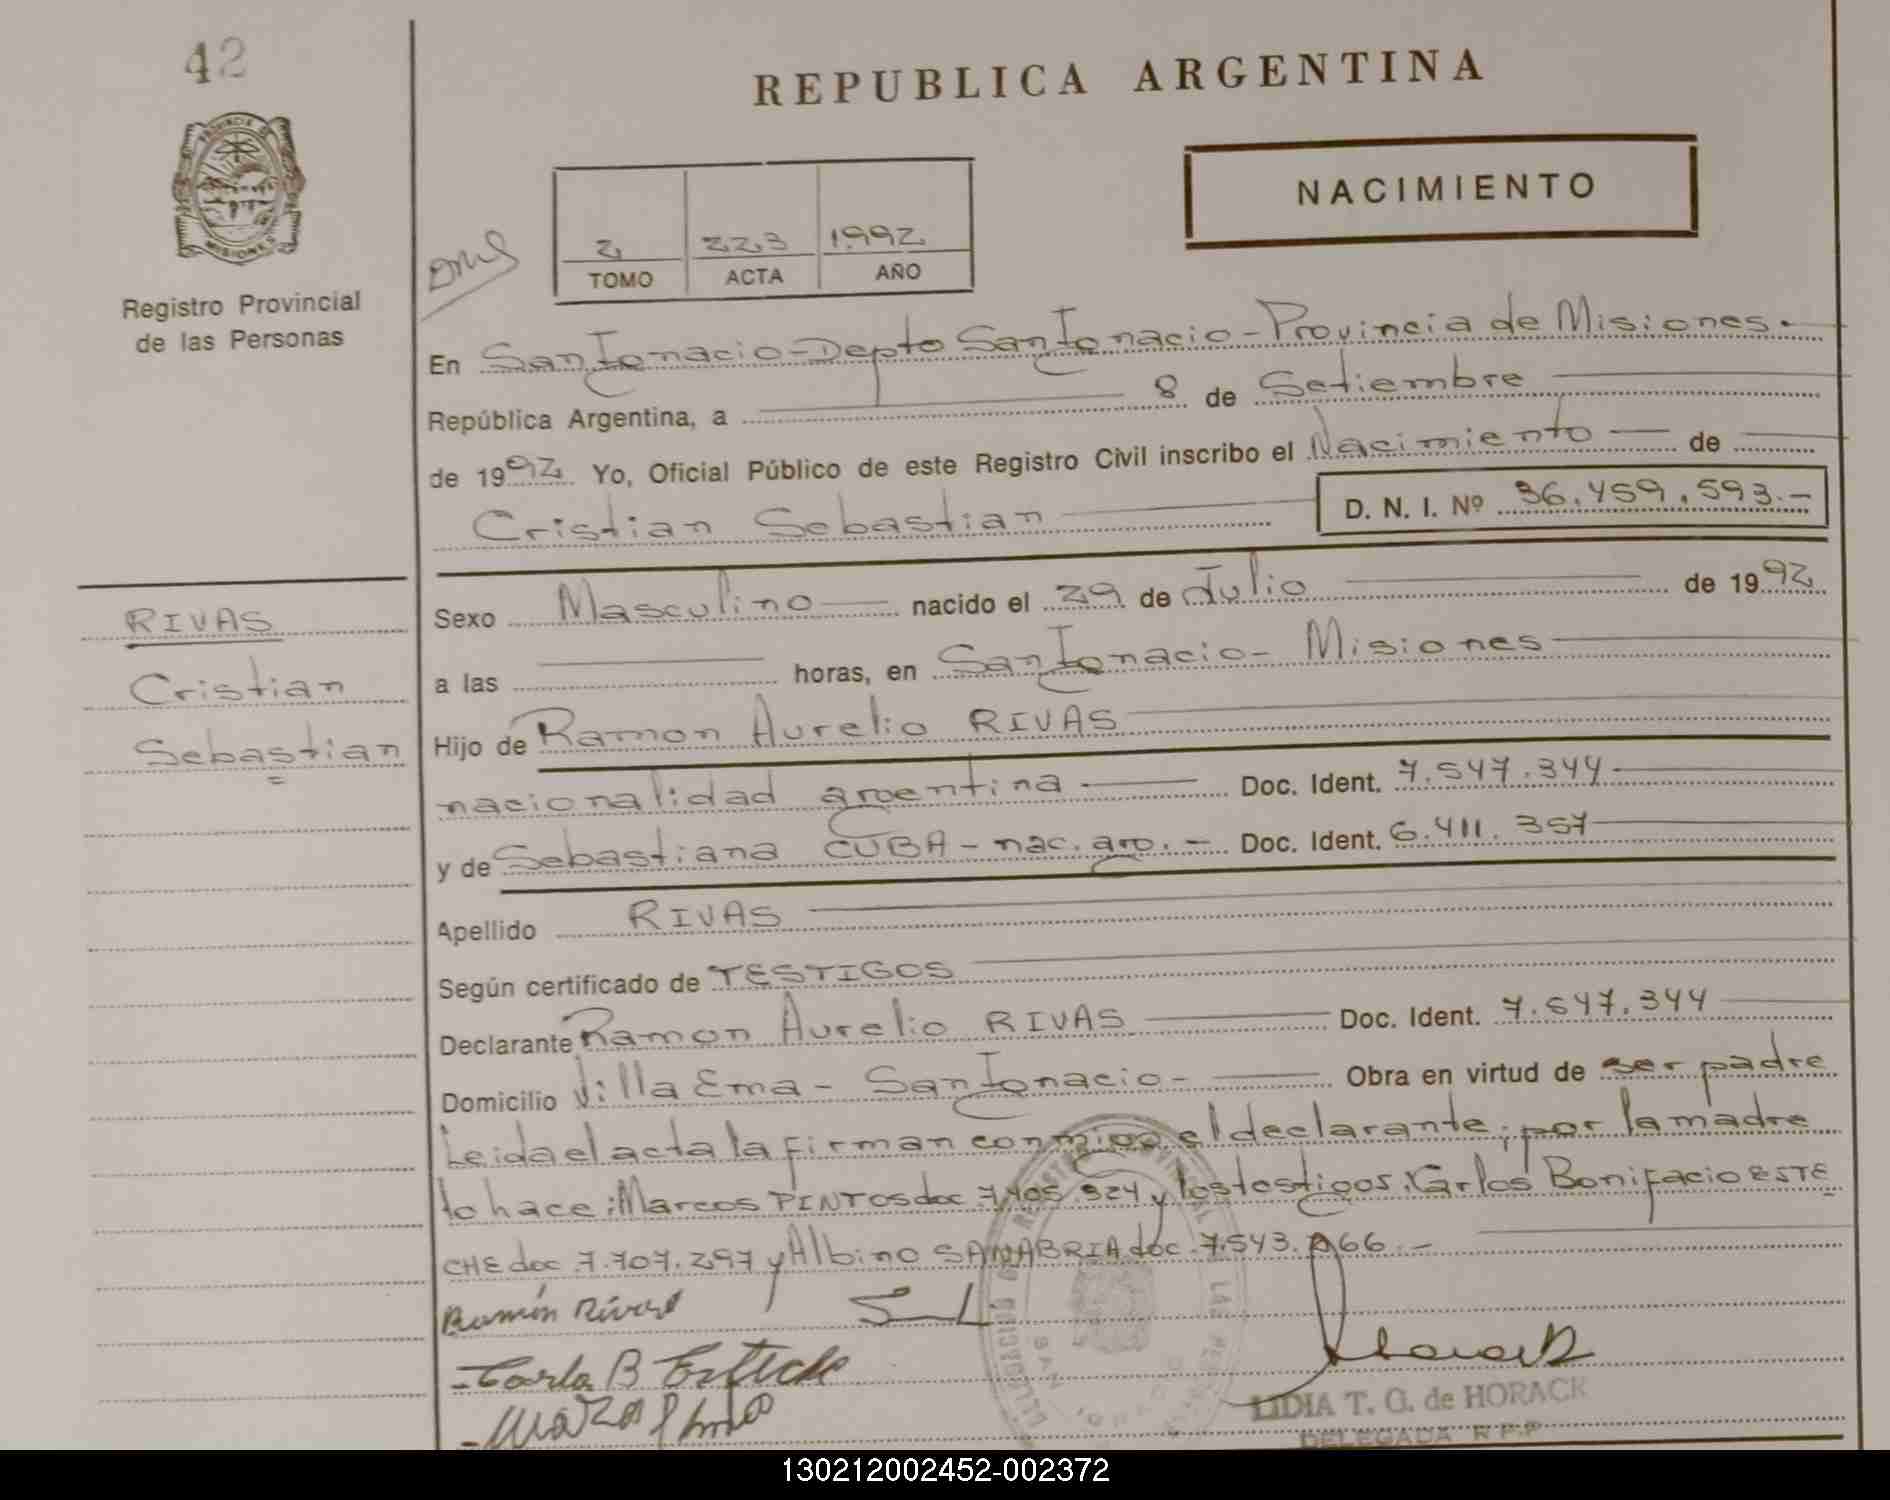 42
REPUBLICA ARGENTINA
PROVINCIA DE
MISIONES
NACIMIENTO
2 223 1992
TOMO ACTA AÑO
Registro Provincial
de las Personas
En San Ignacio - Depto San Ignacio - Provincia de Misiones.-
República Argentina, a 8 de Setiembre
de 1992 Yo, Oficial Público de este Registro Civil inscribo el Nacimiento de
Cristian Sebastian D. N. I. Nº 36.459.593.-
RIVAS
Cristian
Sebastian
Sexo Masculino nacido el 29 de Julio de 1992
a las horas, en San Ignacio - Misiones
Hijo de Ramon Aurelio RIVAS
nacionalidad argentina Doc. Ident. 7.547.344
y de Sebastiana CUBA - nac. arg. - Doc. Ident. 6.411.357
Apellido RIVAS
Según certificado de TESTIGOS
Declarante Ramon Aurelio RIVAS Doc. Ident. 7.547.344
Domicilio Villa Ema - San Ignacio - Obra en virtud de ser padre
Leida el acta la firman conmigo el declarante, por la madre
lo hace: Marcos PINTOS doc. y los testigos: Carlos Bonifacio ESTE
CHE doc. 7.707.297 y Albino SANABRIA doc. 7.543.
Ramón Rivas
Carlos B
LIDIA T. G. de HORACK
DELEGADA R.P.P
130212002452-002372